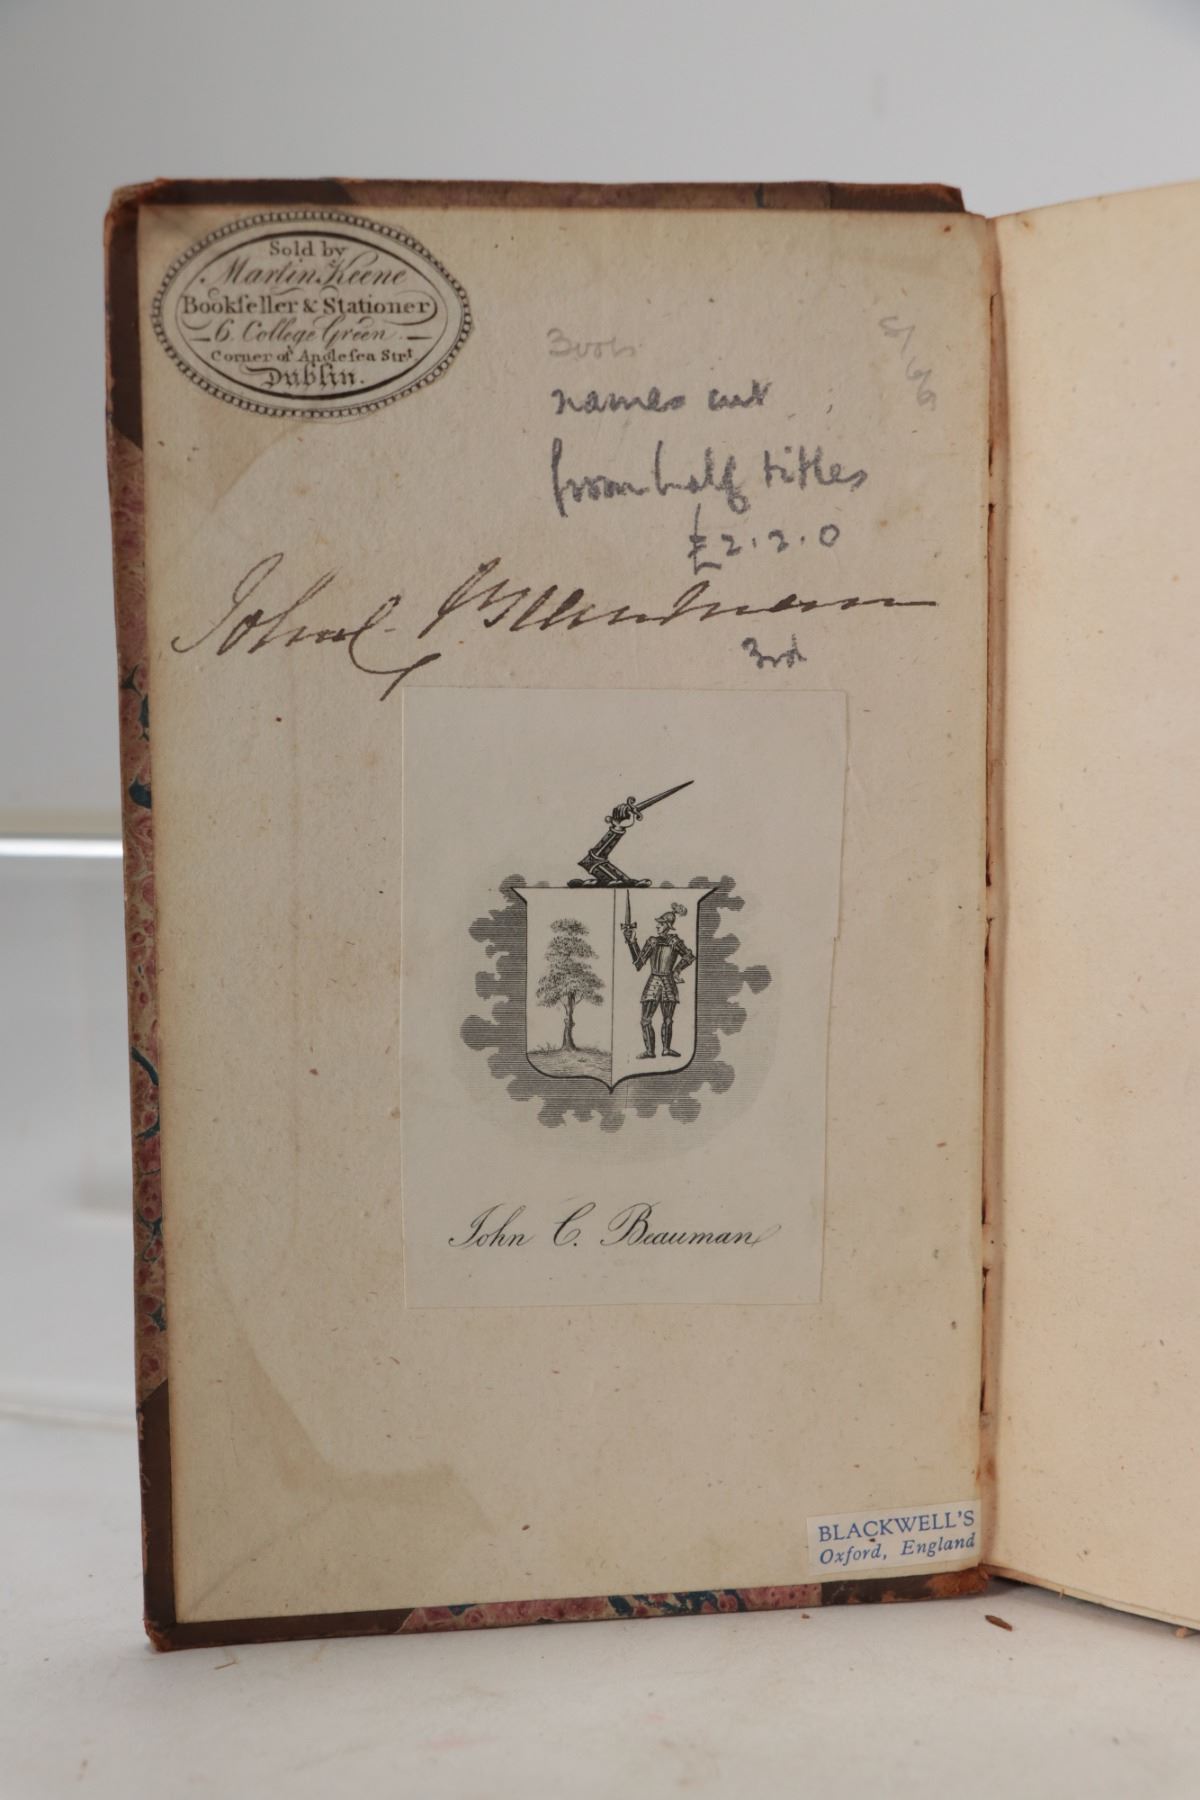 Sold by
Martin Keene
Bookſeller & Stationer
6. College Green
Corner of Angleſea Strt.
Dublin.
3 vols
names cut
from half titles
£2.2.0
John C. Beauman
3rd
John C. Beauman
BLACKWELL'S
Oxford, England